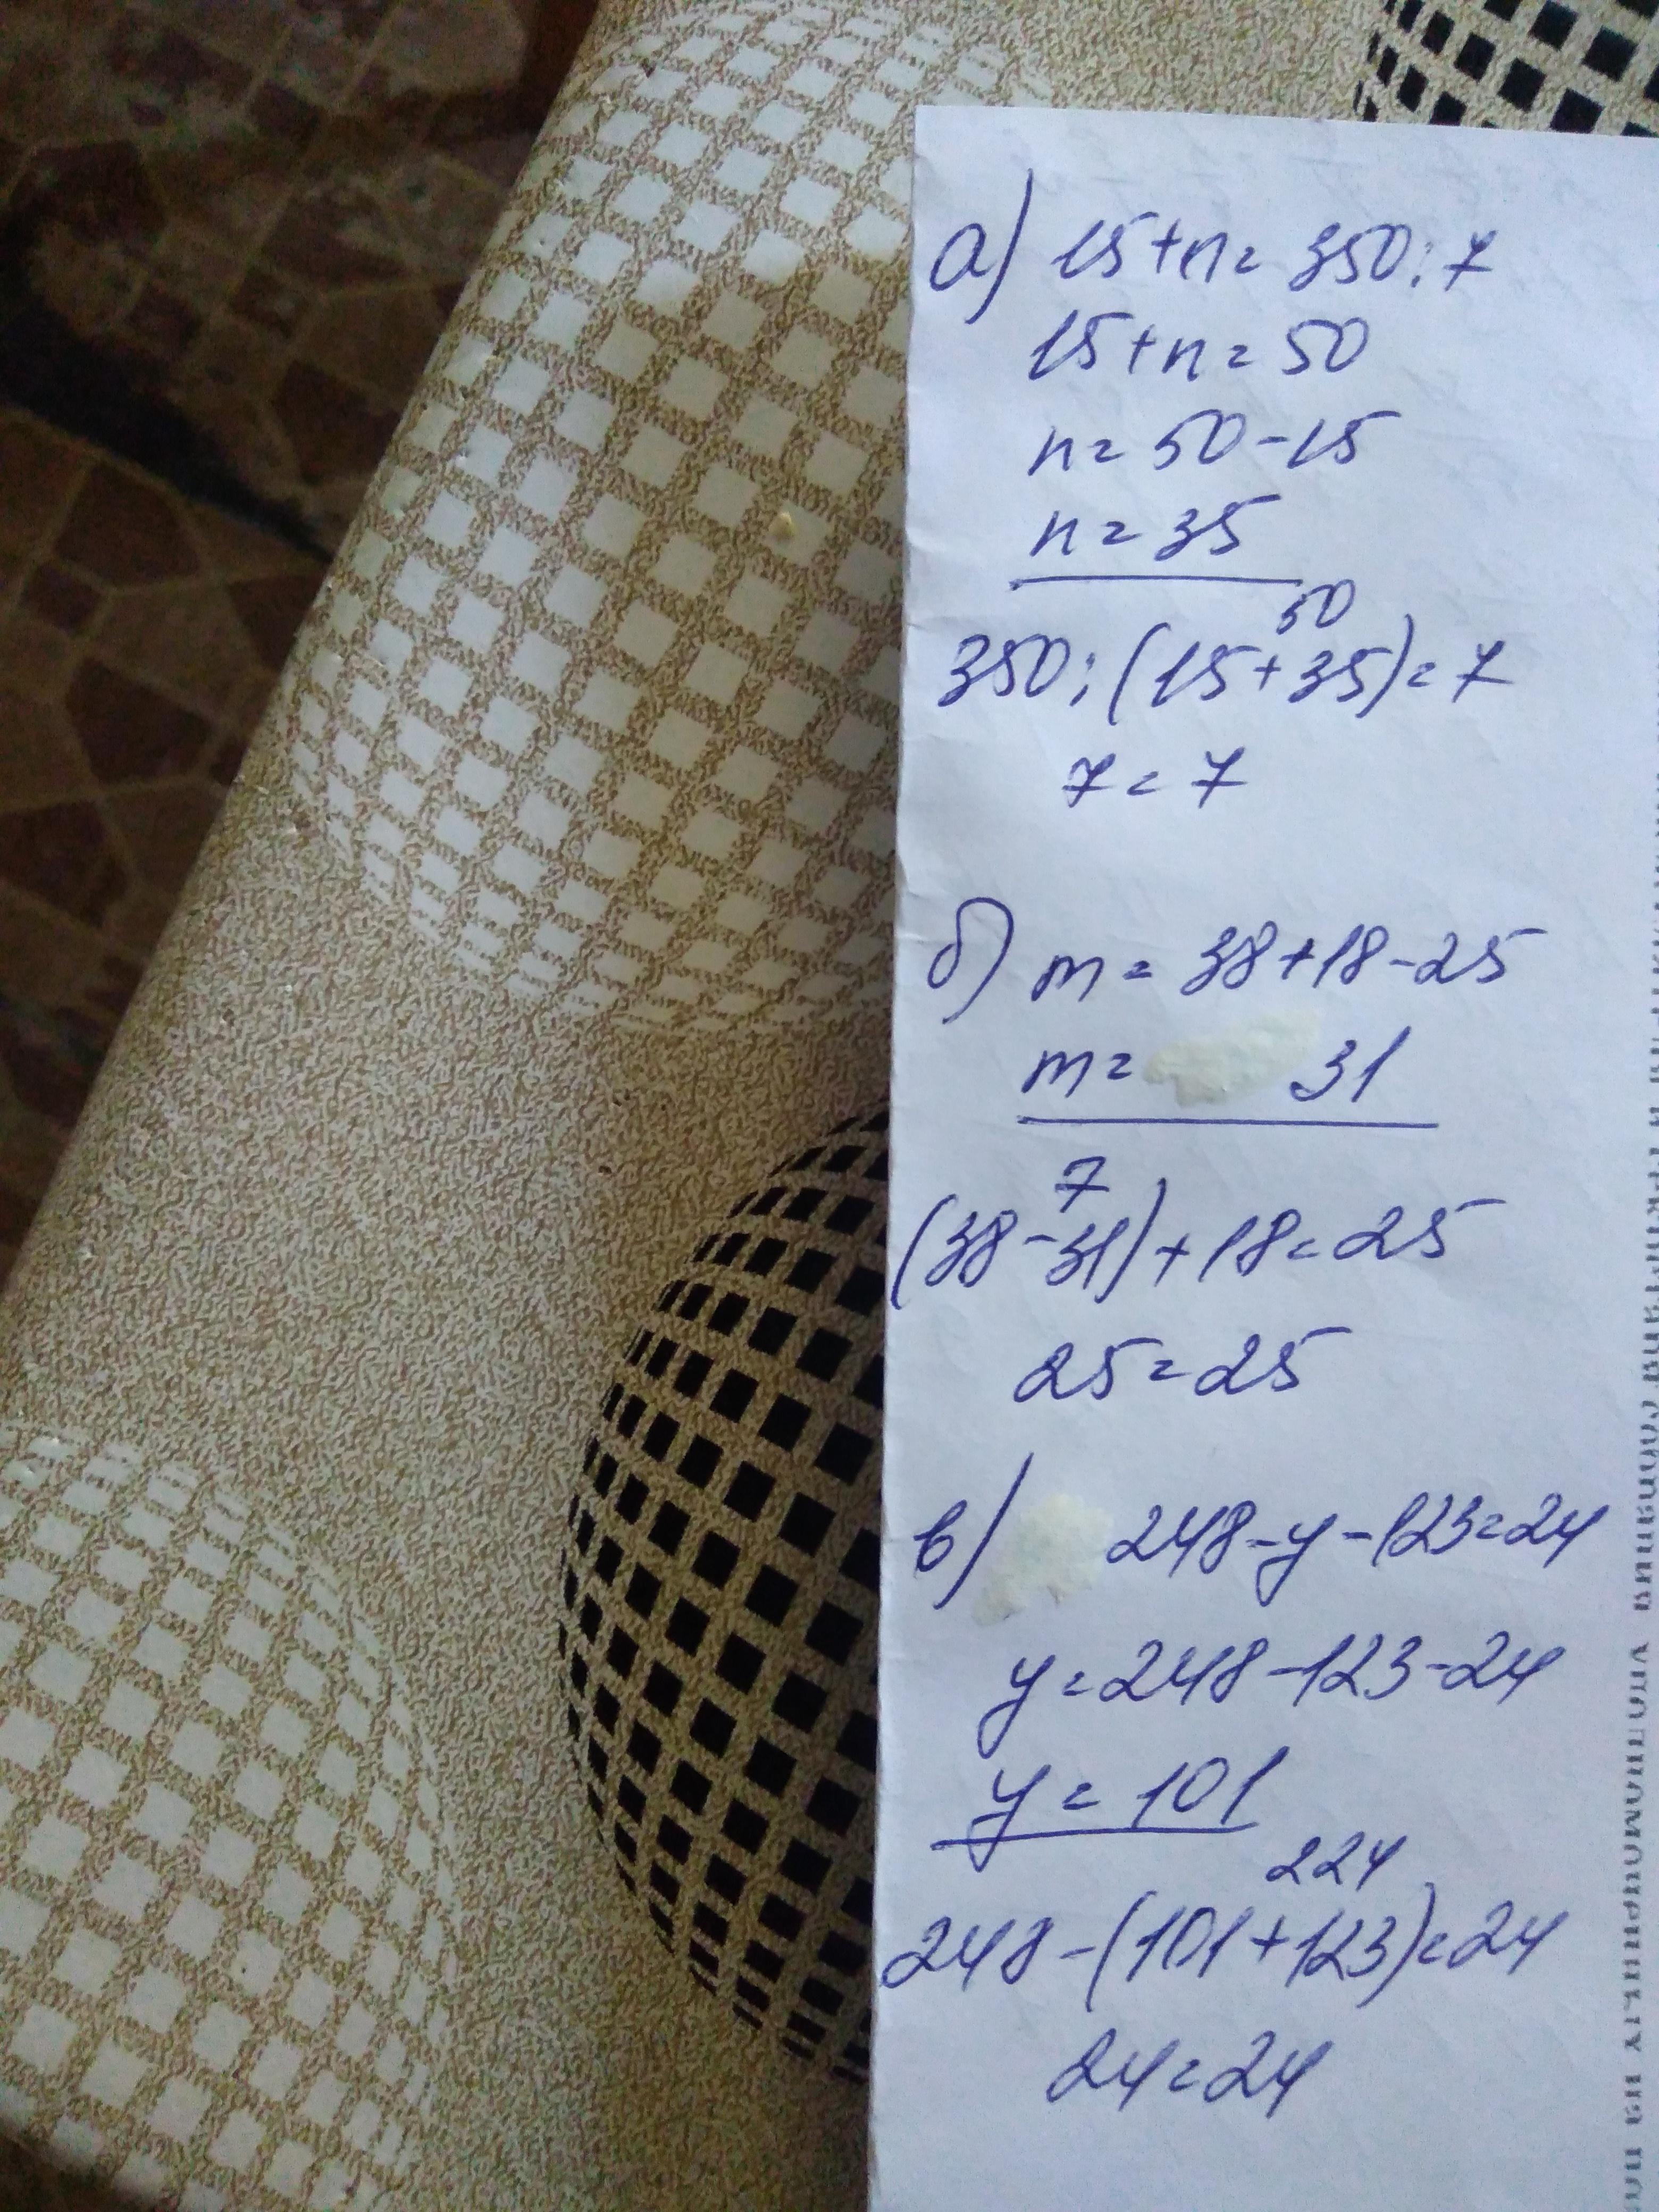 а) 15+n=350:7
15+n=50
n=50-15
n=35
50
350:(15+35)=7
7=7
б) m=38+18-25
m= 31
7
(38-31)+18=25
25=25
в) 248-y-123=24
y=248-123-24
y=101
224
248-(101+123)=24
24=24